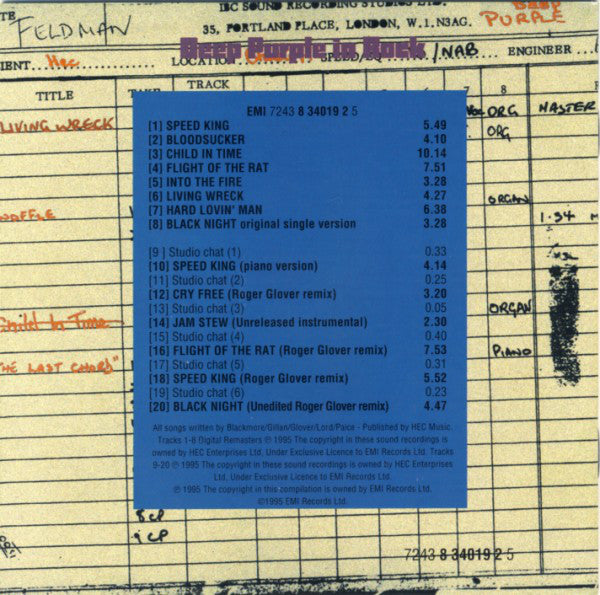 IBC SOUND RECORDING STUDIOS LTD
DEEP PURPLE
FELDMAN
35, PORTLAND PLACE, LONDON, W.1. N3AG.
Deep Purple in Rock
IENT... Hec LOCATION SPEED/EQ /NAB ENGINEER
TRACK
TITLE TAKE 7 8
LIVING WRECK ORG MASTER
ORG
EMI 7243 8 34019 2 5
[1] SPEED KING 5.49
[2] BLOODSUCKER 4.10
[3] CHILD IN TIME 10.14
[4] FLIGHT OF THE RAT 7.51
[5] INTO THE FIRE 3.28
[6] LIVING WRECK 4.27
[7] HARD LOVIN' MAN 6.38
[8] BLACK NIGHT original single version 3.28
ORGAN
1.34
[9] Studio chat (1) 0.33
[10] SPEED KING (piano version) 4.14
[11] Studio chat (2) 0.25
[12] CRY FREE (Roger Glover remix) 3.20
[13] Studio chat (3) 0.05
[14] JAM STEW (Unreleased instrumental) 2.30
[15] Studio chat (4) 0.40
[16] FLIGHT OF THE RAT (Roger Glover remix) 7.53
[17] Studio chat (5) 0.31
[18] SPEED KING (Roger Glover remix) 5.52
[19] Studio chat (6) 0.23
[20] BLACK NIGHT (Unedited Roger Glover remix) 4.47
Child In Time ORGAN
PIANO
THE LAST CHORD"
All songs written by Blackmore/Gillan/Glover/Lord/Paice - Published by HEC Music.
Tracks 1-8 Digital Remasters ℗ 1995 The copyright in these sound recordings is
owned by HEC Enterprises Ltd. Under Exclusive Licence to EMI Records Ltd. Tracks
9-20 ℗ 1995 The copyright in these sound recordings is owned by HEC Enterprises
Ltd, Under Exclusive Licence to EMI Records Ltd.
℗ 1995 The copyright in this compilation is owned by EMI Records Ltd.
©1995 EMI Records Ltd.
8CP
9CP
7243 8 34019 2 5